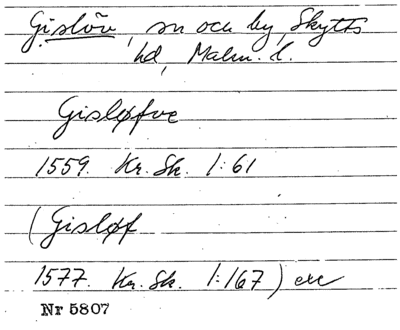 Gislöv, sn och by, Skytts
hd, Malm. l.
Gisløfve
1559. Kr. Sk. 1:61
(Gisløf
1577. Kr. Sk. 1:167)
Nr 5807